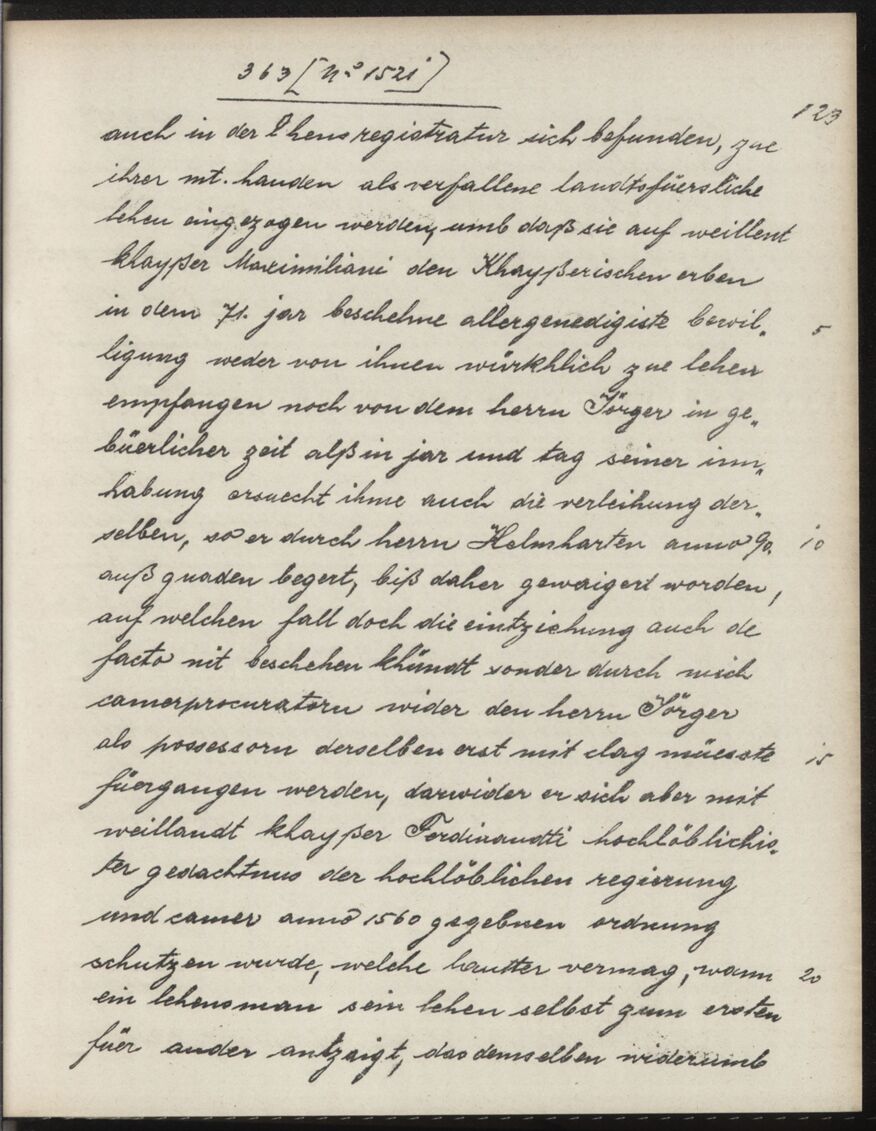 363 [Nº 152i]
123
auch in der lhensregistratur sich befunden, zue
ihrer mt. handen als verfallene landtsfüerstliche
lehen eingezogen werden, umb daß sie auf weillent
khayßer Maximiliani den Khayßerischen erben
in dem 71. jar beschehne allergenedigiste bewil„ 5
ligung weder von ihnen würkhlich zue lehen
empfangen noch von dem herrn Jörger in ge„
büerlicher zeit alß in jar und tag seiner inn„
habung ersuecht ihme auch die verleihung der„
selben, so er durch herrn Helmharten anno 90. 10
auß gnaden begert, biß daher gewaigert worden,
auf welchen fall doch die eintziehung auch de
facto nit beschehen khündt sonder durch mich
camerprocuratorn wider den herrn Jörger
als possessorn derselben erst mit clag müesste 15
füergangen werden, darwider er sich aber mit
weillandt khayßer Ferdinandti hochlöblichis„
ter gedachtnus der hochlöblichen regierung
und camer anno 1560 gegebnen ordnung
schutzen wurde, welche lautter vermag, wann 20
ein lehensman sein lehen selbst zum ersten
füer ander antzaigt, das demselben widerumb